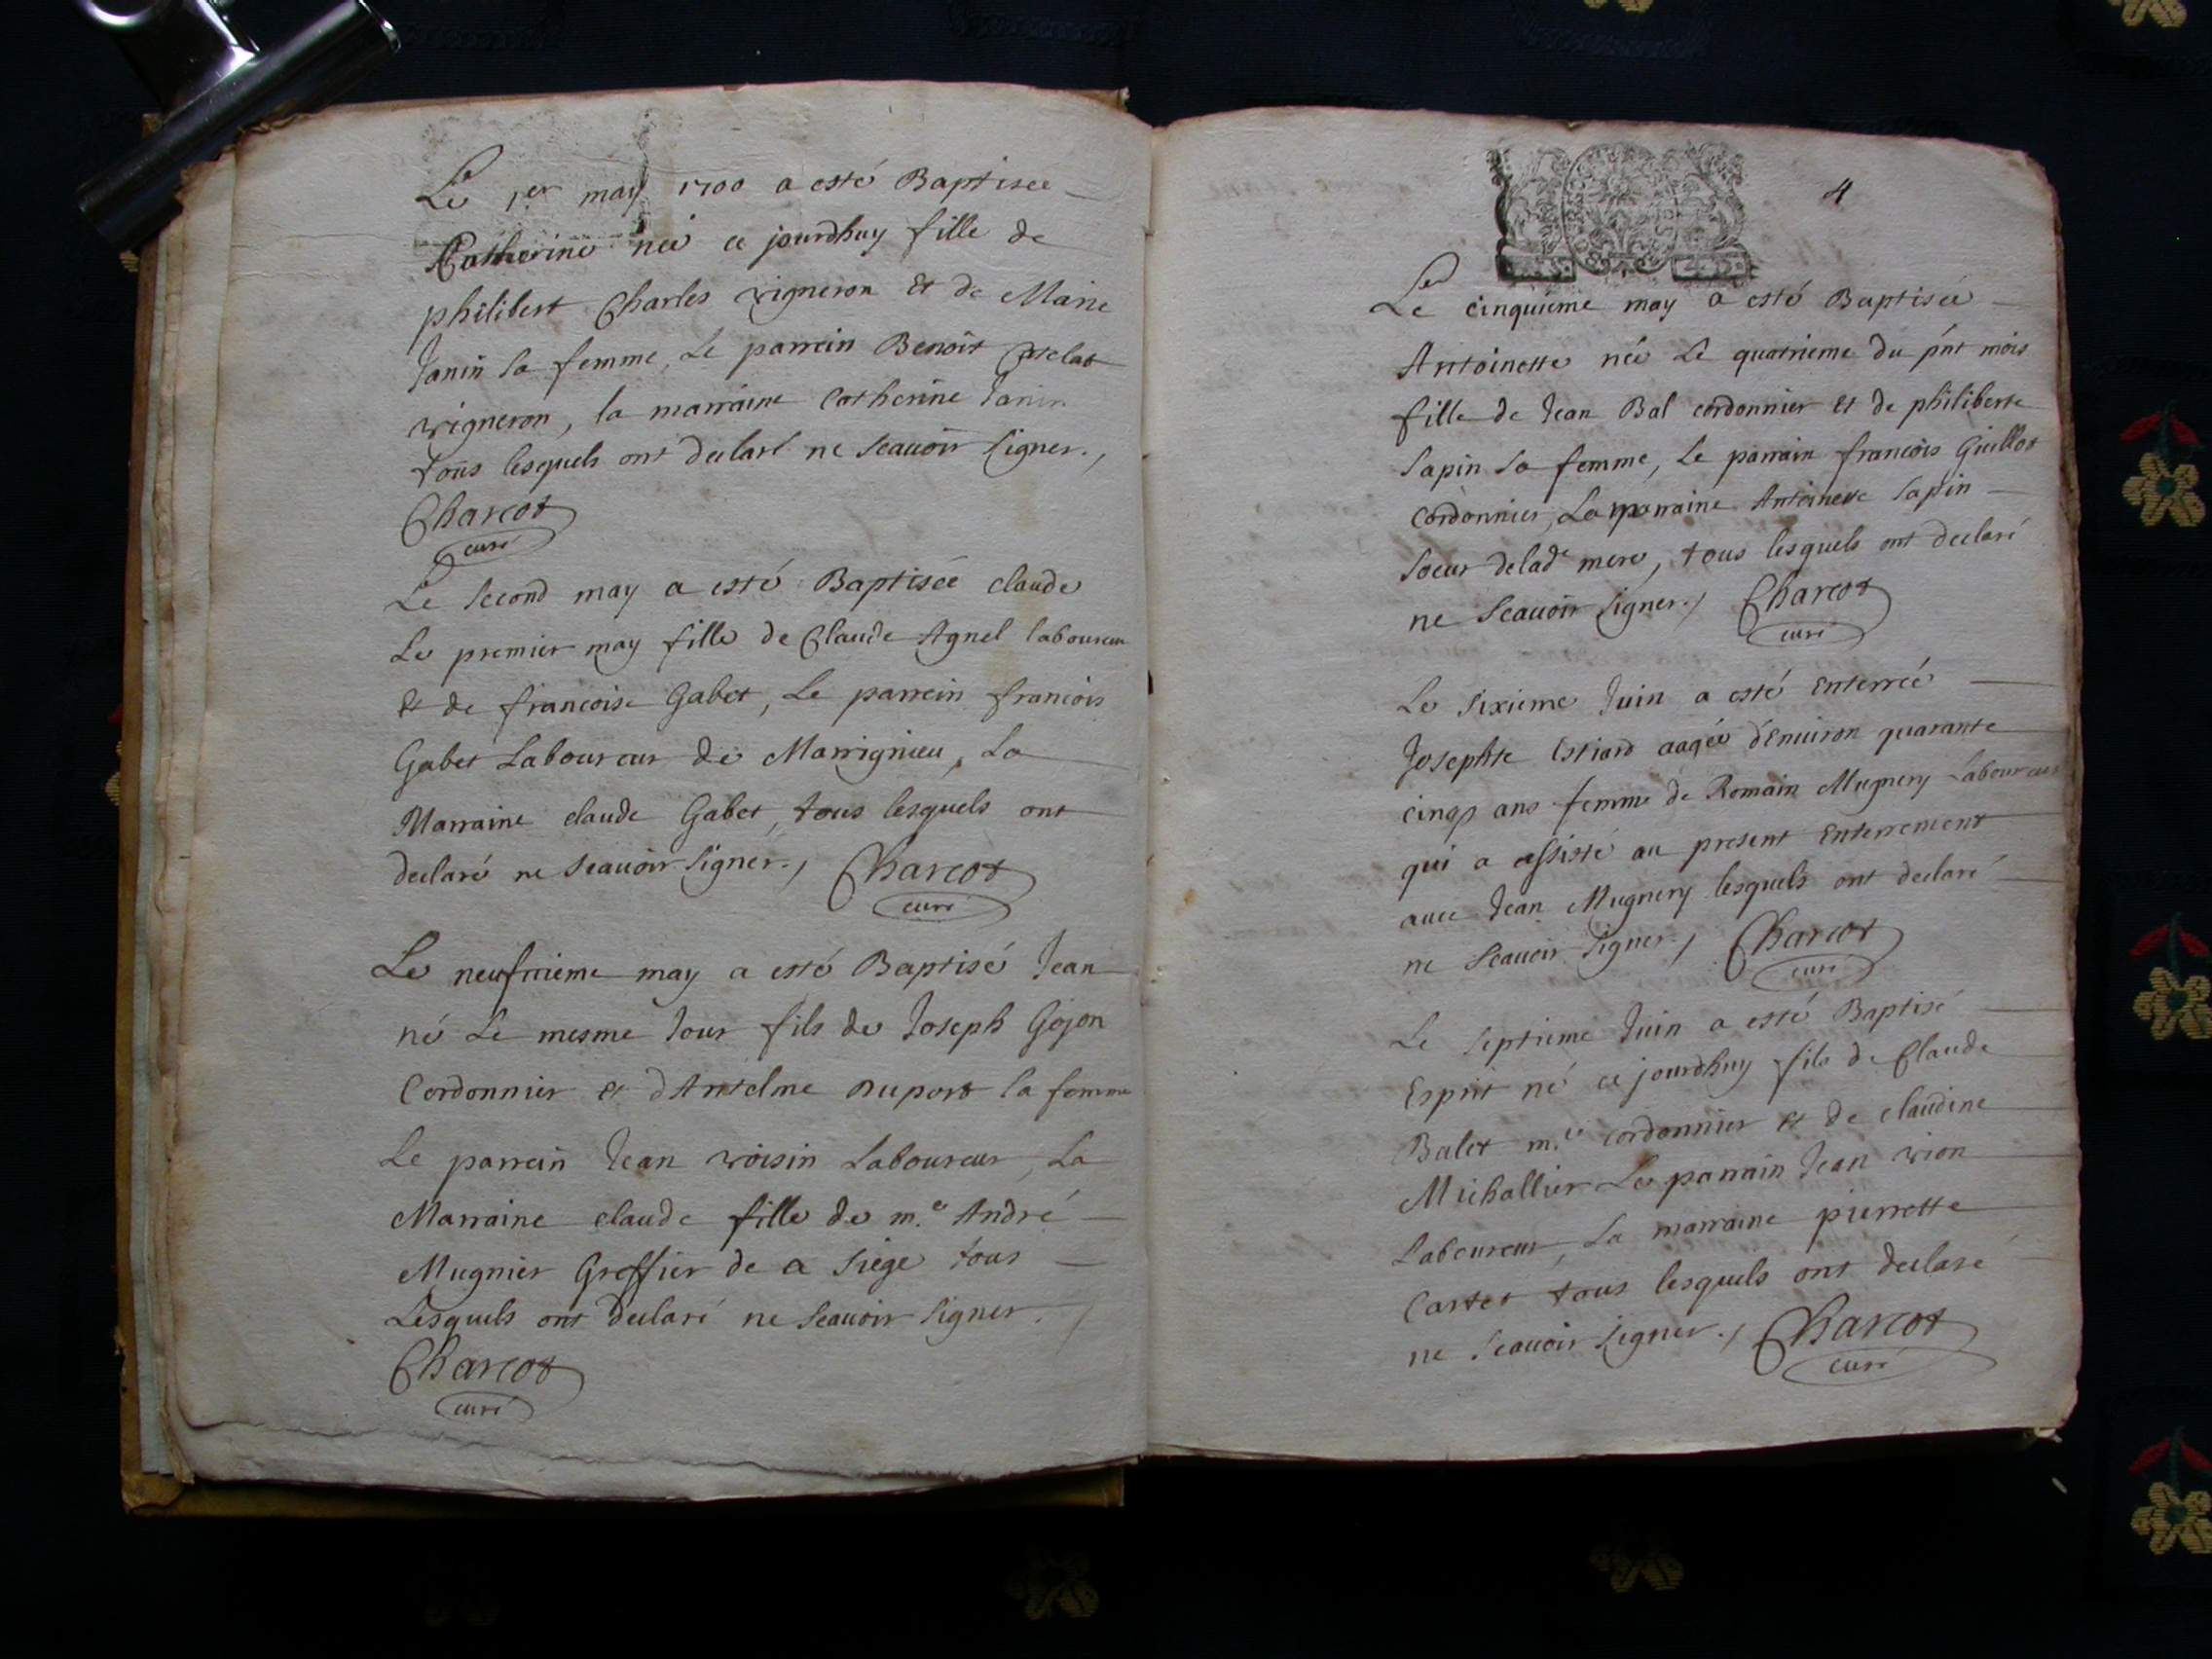 Le 1er may 1700 a esté Baptisée
Catherine neé ce jourdhuy fille de
philibert Charles vigneron Et de Marie
Janin sa femme, Le parrein Benoit
vigneron, la marraine Catherine Janin
tous lesquels ont declaré ne scauoir signer.
Charcot
curé
Le second may a esté Baptisée claude
Le premier may fille de Claude Agnel laboureur
et de francoise Gabet, Le parrein francois
Gabet Laboureur de Marrignieu, La
Marraine claude Gabet, tous lesquels ont
declaré ne scauoir signer. Charcot
curé
Le neufuieme may a esté Baptisé Jean
né Le mesme Jour fils de Joseph Gojon
Cordonnier et d'Antelme Duport sa femme
Le parrein Jean voisin Laboureur, La
Marraine claude fille de m.e André
Mugnier Greffier de ce siege tous
Lesquels ont declaré ne scauoir signer.
Charcot
curé
4
Le cinquiéme may a esté Baptiseé
Antoinette neé Le quatrieme du pnt mois
fille de Jean Bal cordonnier Et de philiberte
Sapin sa femme, Le parrain francois Guillot
Cordonnier, La marraine Antoinette Sapin
soeur delad.e mere, tous lesquels ont declaré
ne scauoir signer. Charcot
curé
Le sixieme Juin a esté Enterreé
Josephte Estiard aageé d'Enuiron quarante
cinq ans femme de Romain Mugnery Laboureur
qui a assisté au present Enterrement
auec Jean Mugnery lesquels ont declaré
ne scauoir signer. Charcot
curé
Le septieme Juin a esté Baptisé
Esprit né ce jourdhuy fils de Claude
Balet m.e cordonnier et de claudine
Michallier Le parrain Jean vion
Laboureur, La marraine pierrette
Cartet tous lesquels ont declaré
ne scauoir signer. Charcot
curé